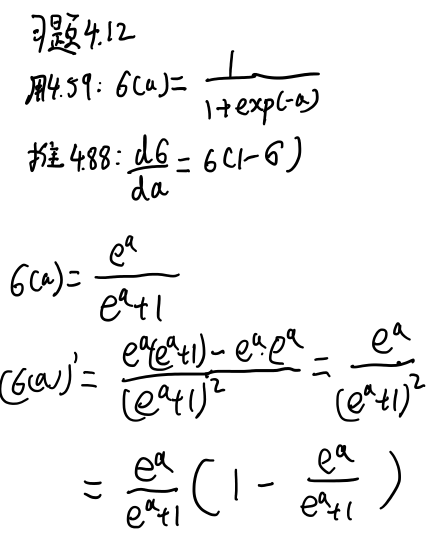 习题4.12
用4.59: σ(a) = 1/(1+exp(-a))
推4.88: dσ/da = σ(1-σ)
σ(a) = e^a/(e^a+1)
(σ(a))' = (e^a(e^a+1) - e^a·e^a)/(e^a+1)^2 = e^a/(e^a+1)^2
= e^a/(e^a+1) (1 - e^a/(e^a+1))